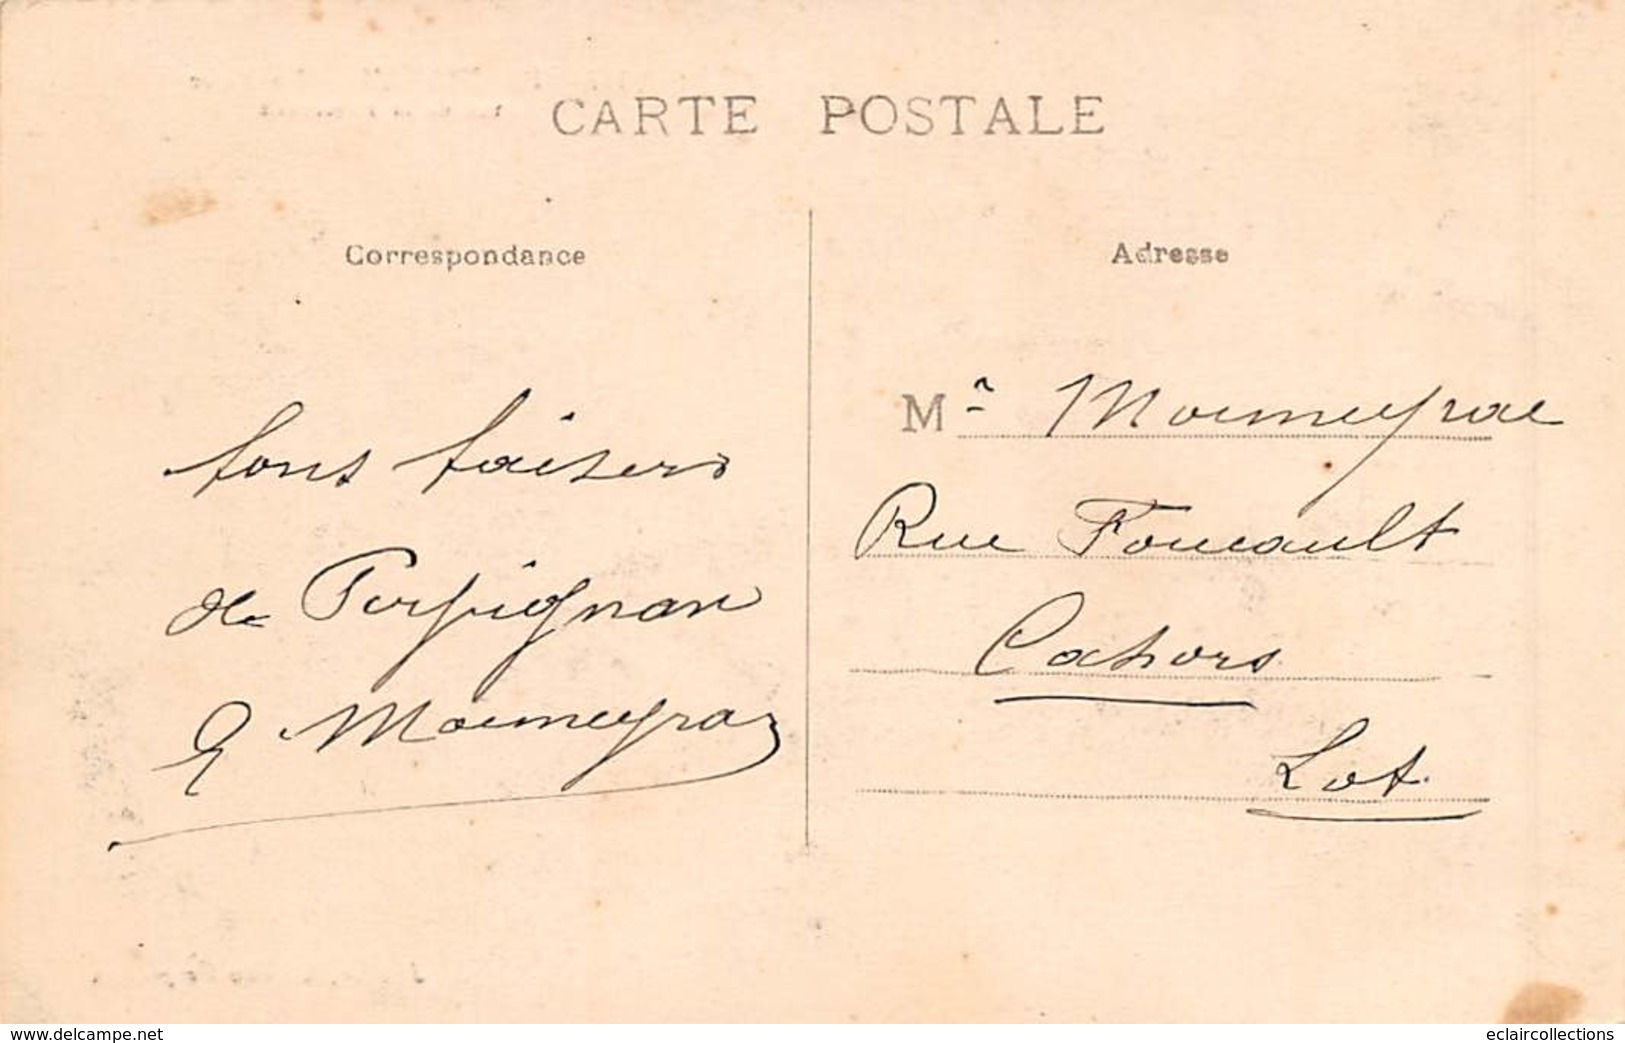 CARTE POSTALE
Correspondance
Adresse
bons baisers
de Perpignan
E Momeyrac
Mr Momeyrac
Rue Foucault
Cahors
Lot
www.delcampe.net
eclaircollections